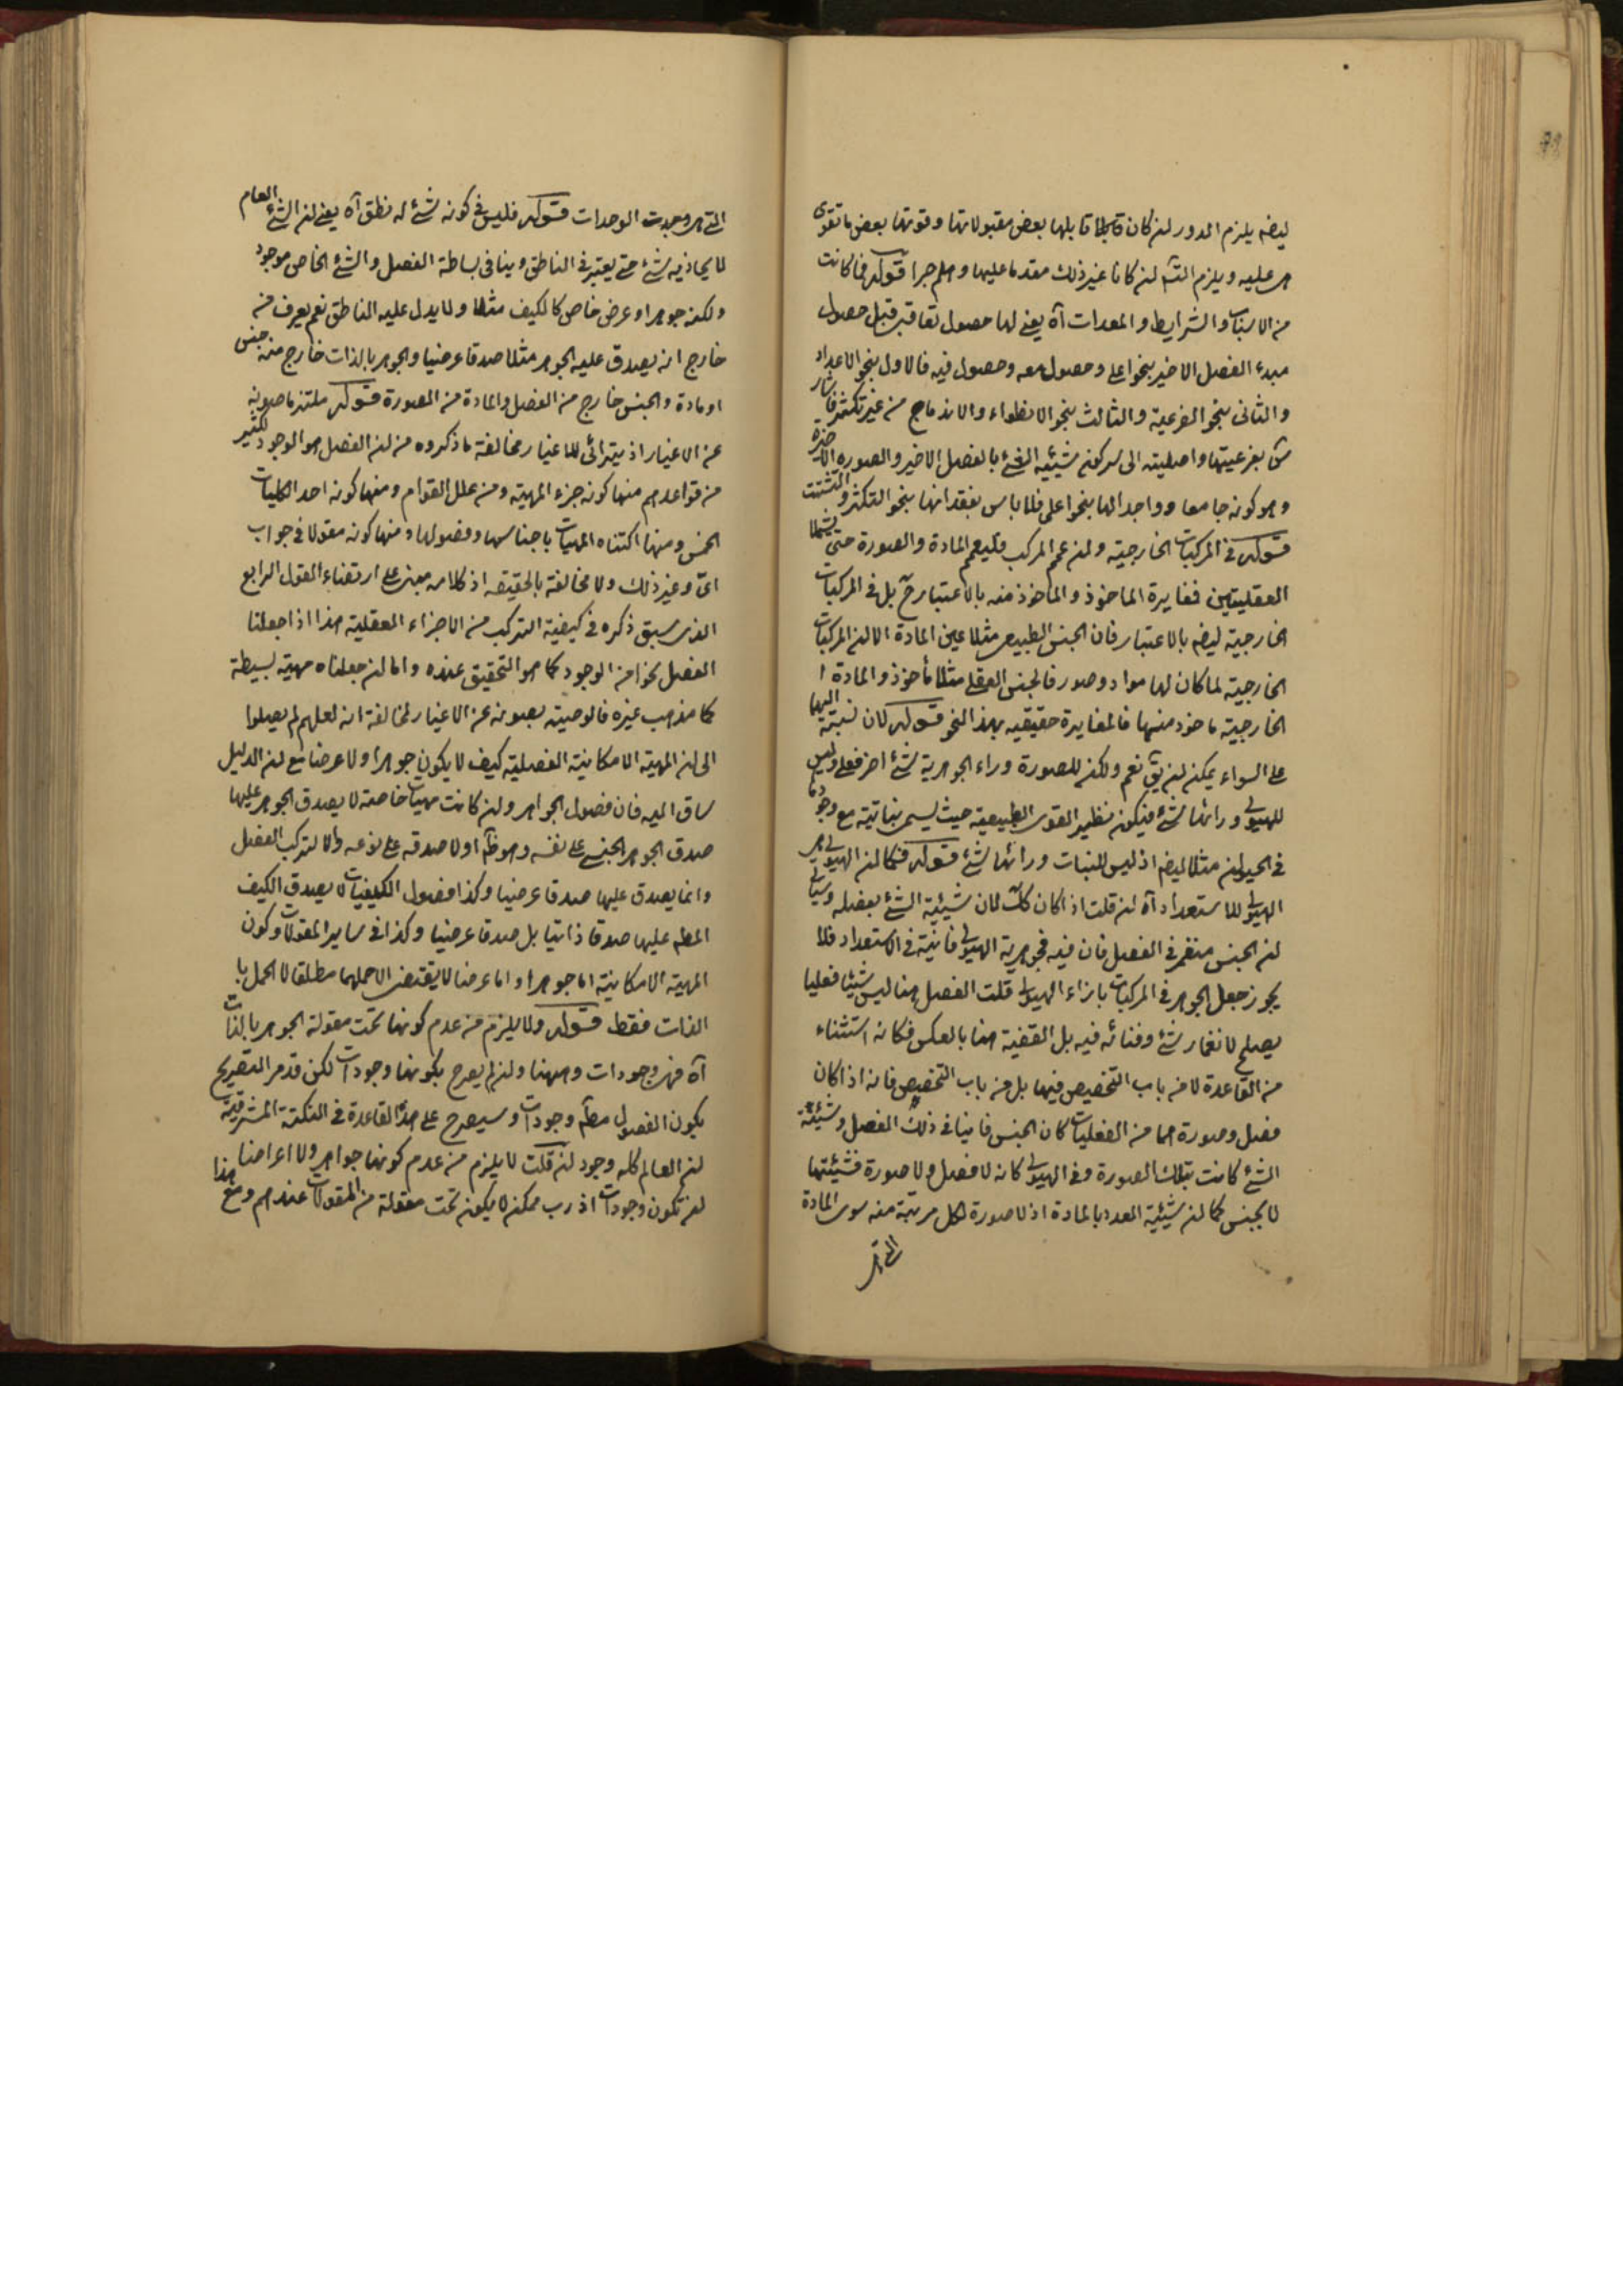 ايضه يلزم الدور لان كان قابلها بعض مقبولاتها وقوتها بعض ما تقوى
هى عليه ويلزم التسـ ان كانا غير ذلك مقدما عليها وهلم جرا قوله فما كانت
من الاسباب والشرايط والمعدات آه يعنى لها حصول تعاقبى قبل حصول
مبدء الفصل الاخير بنحو اعلى وحصول معه وحصول فيه فالاول بنحو الاعداد
والثانى بنحو الفرعية والثالث بنحو الانطواء والاندماج من غير تكثر فاشار
س بفرعيتها واصليته الى سركون شيئية الشئ بالفصل الاخير والصورة الاخيرة
وهو كونه جامعا وواجدا لها بنحو اعلى فلا باس بفقدانها بنحو التكثر والتشتت
قوله فى المركبات الخارجية وان عمم المركب فليعمم المادة والصورة حتى يشملا
العقليتين فمغايرة الماخوذ والماخوذ منه بالاعتبار ح بل فى المركبات
الخارجية ايضه بالاعتبار فان الجنس الطبيعى مثلا عين المادة الا ان المركبات
الخارجية لما كان لها مواد وصور فالجنس العقلى مثلا مأخوذ والمادة ا
الخارجية ماخوذ منها فالمغايرة حقيقيه بهذا النحو قوله لان نسبته اليها
على السواء يمكن ان يق نعم ولكن للصورة وراء الجوهرية شئ اخر فعلى وليس
للهيولى ورائها شئ فيكون نظير القوى الطبيعية حيث يسمى نباتية مع وجودها
فى الحيوان مثلا ايضه اذ ليس للنبات ورائها شئ قوله فكما ان الهيولى هى
الهيولى للاستعداد آه ان قلت اذا كان كك لان شيئية الشئ بفصله وسياتى
ان الجنس منغمر فى الفصل فان فيه فجوهرية الهيولى فانية فى الاستعداد فلا
يجوز جعل الجوهر فى المركبات بازاء الهيولى قلت الفصل هنا ليس شيئا فعليا
يصلح لانغمار شئ وفنائه فيه بل القضية هنا بالعكس فكانه استثناء
من القاعدة لا من باب التخصيص فيها بل من باب التخصص فانه اذا كان
فصل وصورة هما من الفعليات كان الجنس فانيا فى ذلك الفصل وشيئية
الشئ كانت بتلك الصورة وفى الهيولى كانه لا فصل ولا صورة فشيئتها
لا بجنس كما ان شيئية العدد بالمادة اذ لا صورة لكل مرتبة منه سوى المادة
التى هى
التى هى وحدت الوحدات قوله فليس فى كونه شئ له نطق آه يعنى ان الشئ العام
لا يحاذيه شئ حتى يعتبر فى الناطق وينافى بساطة الفصل والشئ الخاص موجود
ولكنه جوهر او عرض خاص كالكيف مثلا ولا يدل عليه الناطق نعم يعرف من
خارج انه يصدق عليه الجوهر مثلا صدقا عرضيا والجوهر بالذات خارج منه جنس
او مادة والجنس خارج من الفصل والمادة من الصورة قوله ملتزما صونه
عن الاغيار اذ يترائى للاغيار مخالفة ما ذكروه من ان الفصل هو الوجود لكثير
من قواعدهم منها كونه جزء المهية ومن علل القوام ومنها كونه احد الكليات
الخمس ومنها اكتناه المهيات باجناسها وفصولها ومنها كونه مقولا فى جواب
اى وغير ذلك ولا مخالفة بالحقيقه اذ كلامه مبنى على ارتضاء القول الرابع
الذى سبق ذكره فى كيفية التركب من الاجزاء العقلية هذا اذا جعلنا
الفصل نحوا من الوجود كما هو التحقيق عنده واما ان جعلناه مهية بسيطة
كما مذهب غيره فالوصية بصونه عن الاغيار لمخالفة انه لعلهم لم يصلوا
الى ان المهية الامكانية الفصلية كيف لا يكون جوهرا ولا عرضا مع ان الدليل
ساق اليه فان فصول الجواهر وان كانت مهيات خاصة لا يصدق الجوهر عليها
صدق الجوهر الجنسى على نفسه وهو ظاهر ولا صدقه على نوعه والا لتركب الفصل
وانما يصدق عليها صدقا عرضيا وكذا فصول الكيفيات لا يصدق الكيف
المطلق عليها صدقا ذاتيا بل صدقا عرضيا وكذا فى ساير المقولات وكون
المهية الامكانية اما جوهرا واما عرضا لا يقتضى الا حملهما مطلقا لا الحمل با
الذات فقط قوله ولا يلزم من عدم كونها تحت مقولة الجوهر بالذات
آه فهى وجودات وههنا وان لم يصرح بكونها وجودات لكن قد مر التصريح
بكون الفصول مطلقا وجودات وسيصرح على هذا القاعدة فى النكتة المشرقية
ان العالم كله وجود ان قلت لا يلزم من عدم كونها جواهر ولا اعراضا
ان تكون وجودات اذ رب ممكن لا يكون تحت مقولة من المقولات عندهم ومع هذا